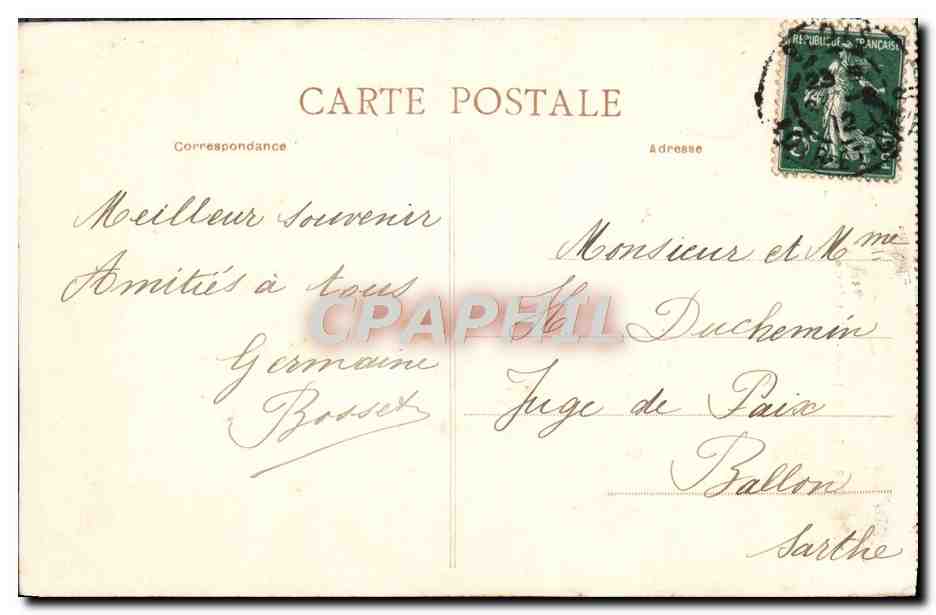 CARTE POSTALE
Correspondance
Adresse
REPUBLIQUE FRANÇAISE
Meilleur souvenir
Amitiés à tous
Germaine
Bosset
Monsieur et Mme
H. Duchemin
Juge de Paix
Ballon
Sarthe
CPAPHIL